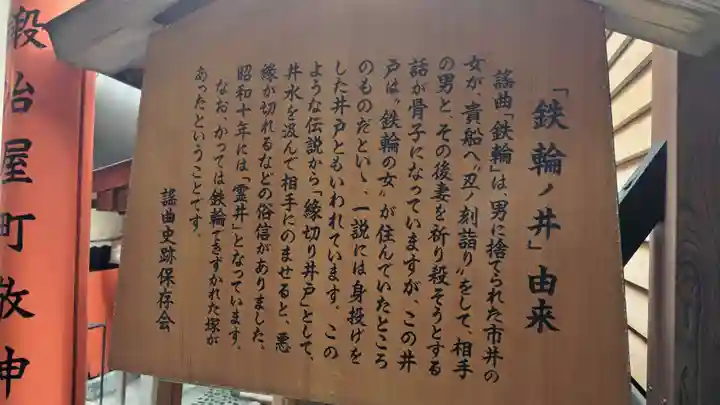 「鉄輪ノ井」由来
謡曲「鉄輪」は、男に捨てられた市井の
女が、貴船へ〝丑ノ刻詣り〟をして、相手
の男と、その後妻を祈り殺そうとする
話が骨子になっていますが、この井
戸は〝鉄輪の女〟が住んでいたところ
のものだといい、一説には身投げを
した井戸ともいわれています。この
ような伝説から「縁切り井戸」として、
井水を汲んで相手にのませると、悪
縁が切れるなどの俗信がありました、
昭和十年には「霊井」となっています、
なお、かつては鉄輪できずかれた塚が
あったということです。
謡曲史跡保存会
鍛冶屋町敬神